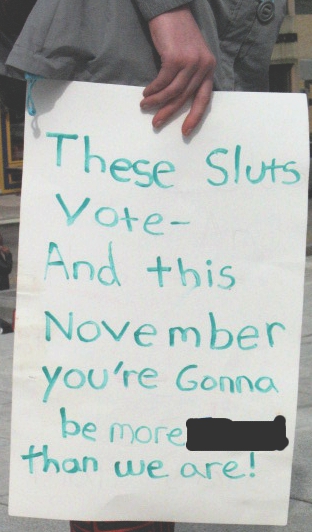 These Sluts
Vote-
And this
November
you're Gonna
be more
than we are!